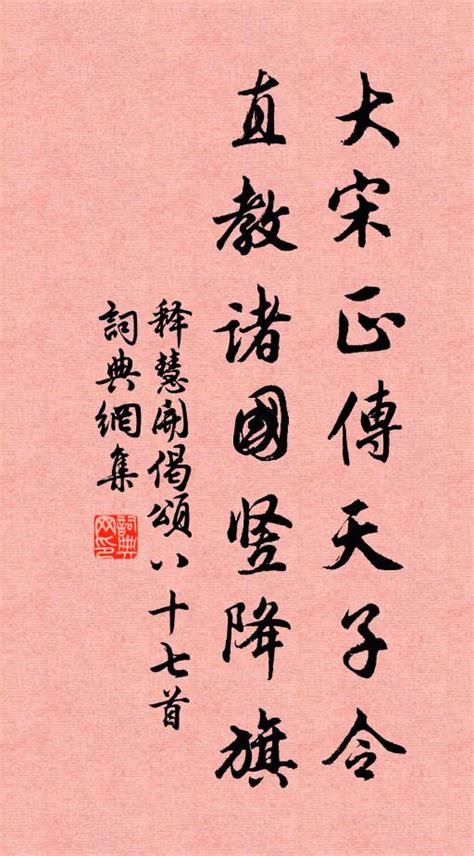 大宋正傳天子令
直教諸國竖降旗
释慧開偈頌八十七首
詞典網集
詞典
网印